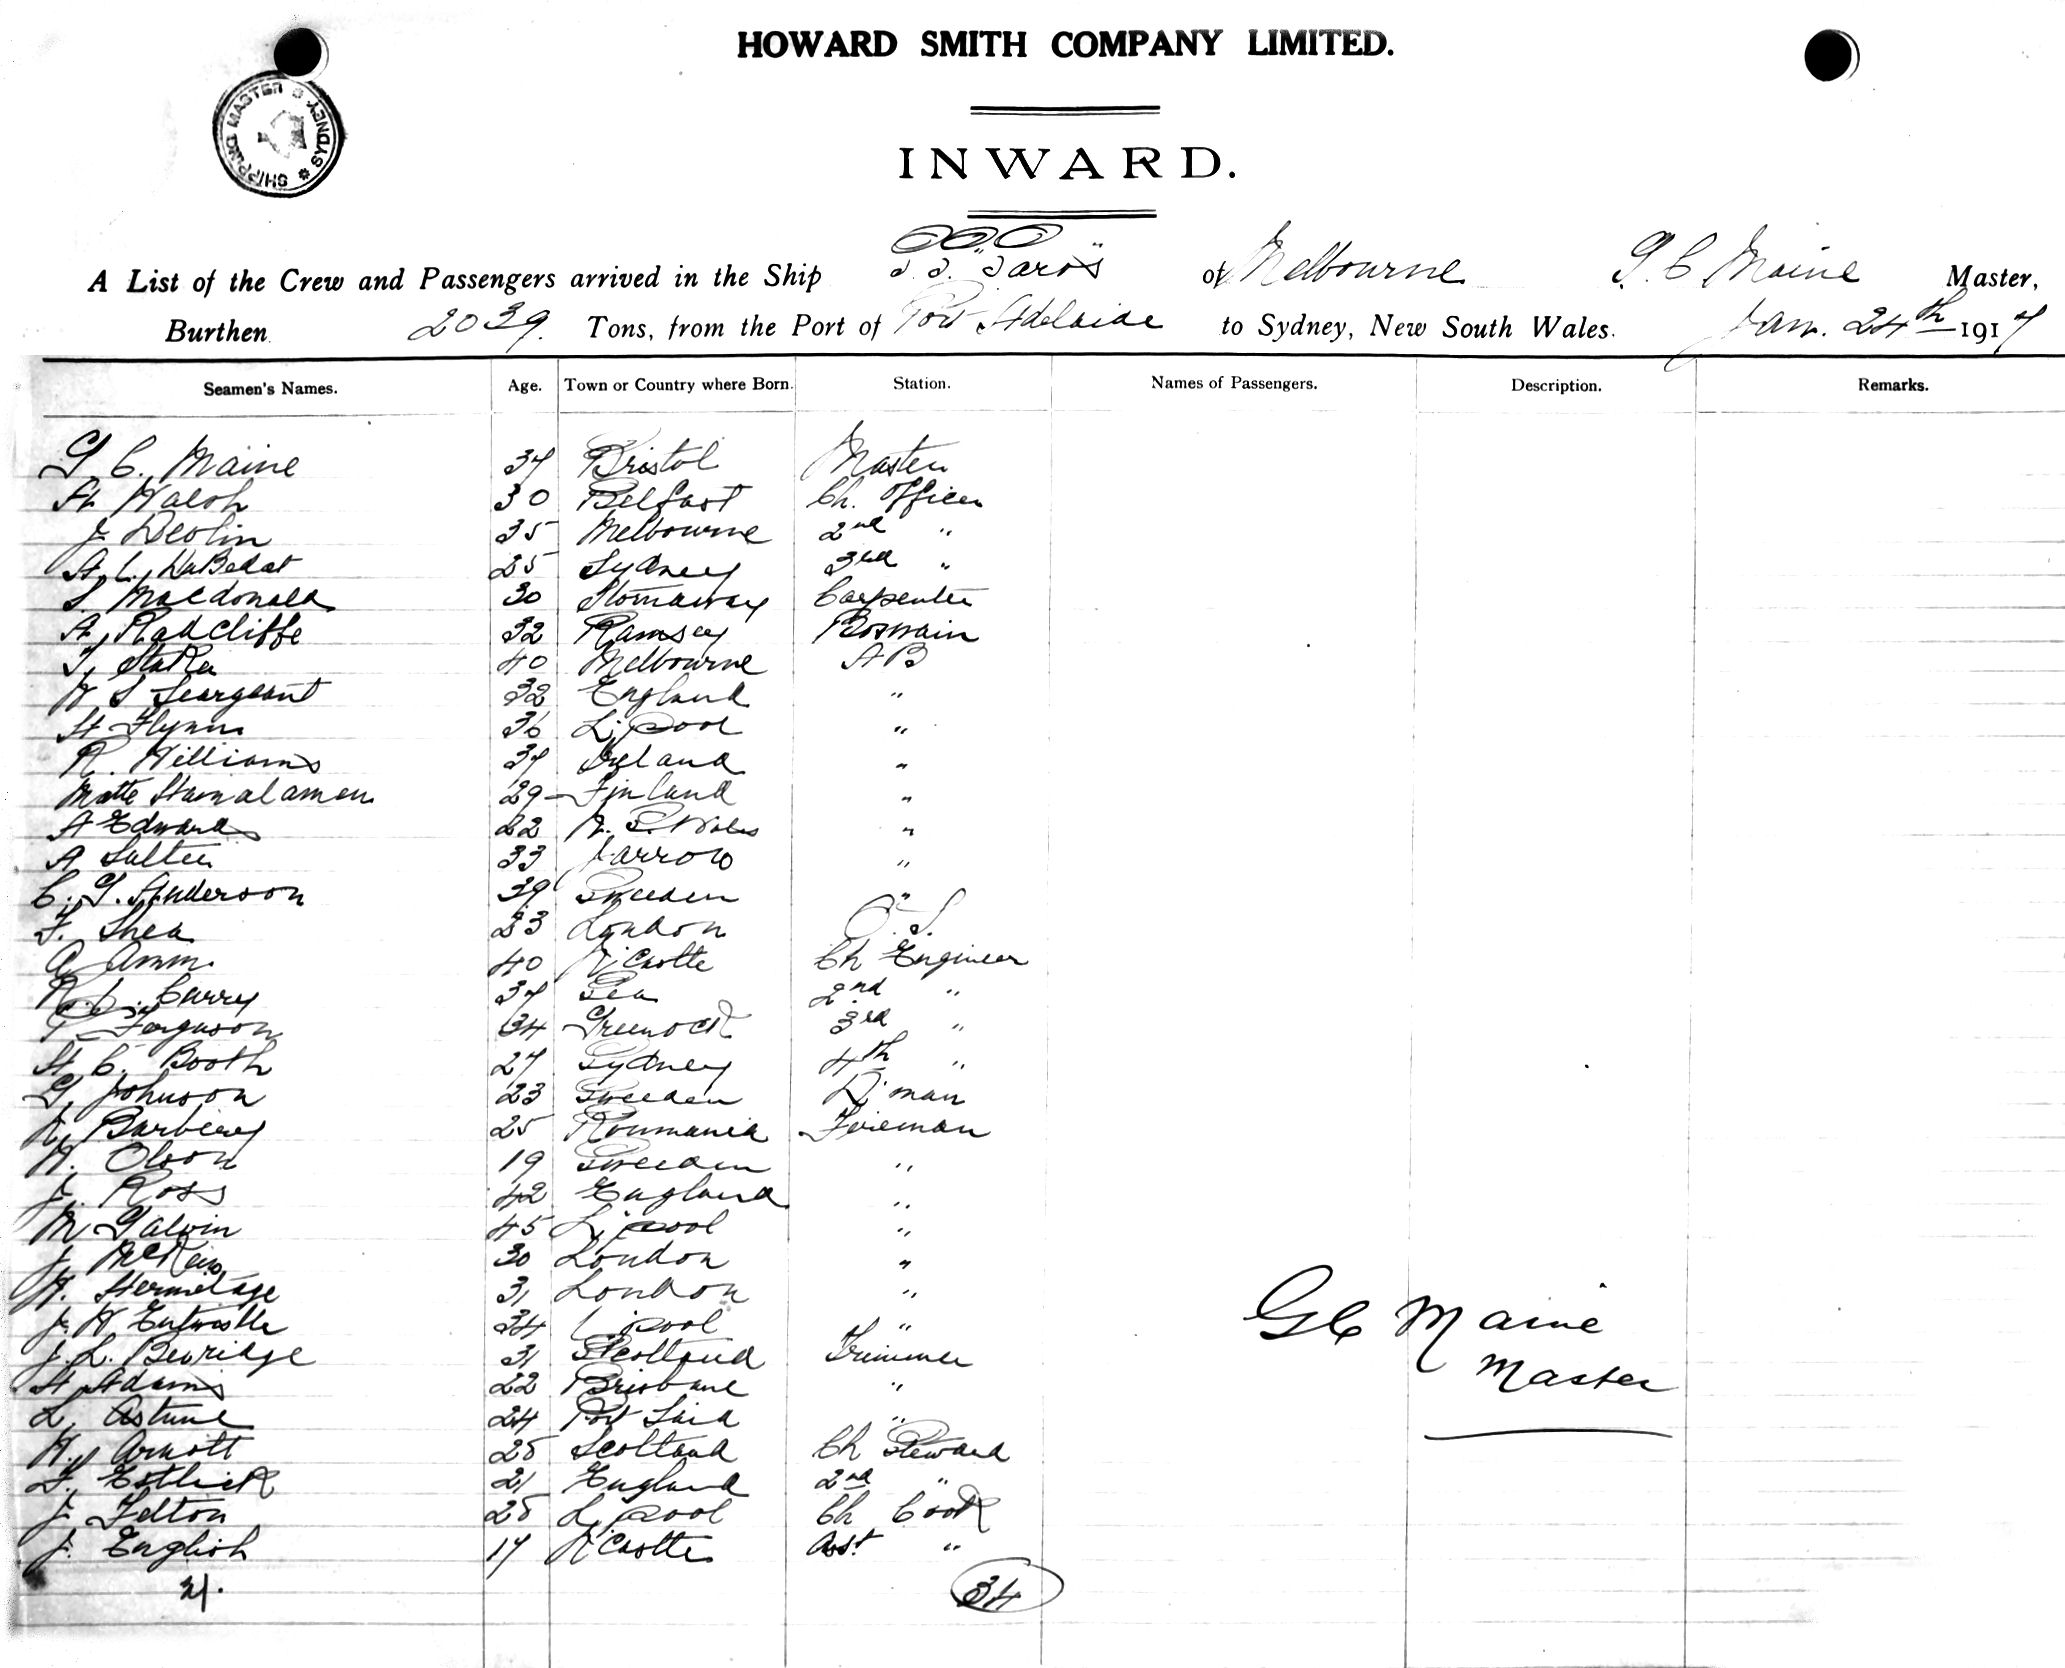 HOWARD SMITH COMPANY LIMITED.
SHIPPING MASTER * SYDNEY *
INWARD.
A List of the Crew and Passengers arrived in the Ship S.S. "Taros" of Melbourne G C Maine Master,
Burthen 2039. Tons, from the Port of Port Adelaide to Sydney, New South Wales. Jan. 24th 1917
Seamen's Names. Age. Town or Country where Born. Station. Names of Passengers. Description. Remarks.
G. C. Maine 37 Bristol Master
H. Walsh 30 Belfast Ch. Officer
J. Devlin 35 Melbourne 2nd "
H. C. DuBedat 25 Sydney 3rd "
S. Macdonald 30 Stornaway Carpenter
A. Radcliffe 32 Ramsey Boswain
T. 40 Melbourne A B
W S Seargeant 32 England "
H Flynn 36 L'pool "
R. Williams 37 Ireland "
Matte 29 Finland "
A Edwards 22 N. S. Wales "
A Salter 33 Jarrow "
C. G. Anderson 39 Sweeden "
F. Shea 23 London O. S.
A Amm. 40 N'Castle Ch Engineer
R. L. Carry 37 Sea 2nd "
T Ferguson 34 Greenock 3rd "
H C. Booth 27 Sydney 4th "
G. Johnson 23 Sweeden D'man
25 Roumania Fireman
W. Olson 19 Sweeden "
J. Ross 42 England "
M Galvin 45 L'pool "
J. 30 London "
W. Hermitage 31 London "
J. W Entwistle 34 L'pool "
J. L. Beuridge 31 Scotland Trimmer
H. Adams 22 Brisbane "
L. Astune 24 Port Said "
W. Arnott 25 Scotland Ch Steward
F. Estlick 21 England 2nd "
J. Felton 25 L'pool Ch Cook
J. English 17 N'Castle Asst "
34
G C Maine
Master